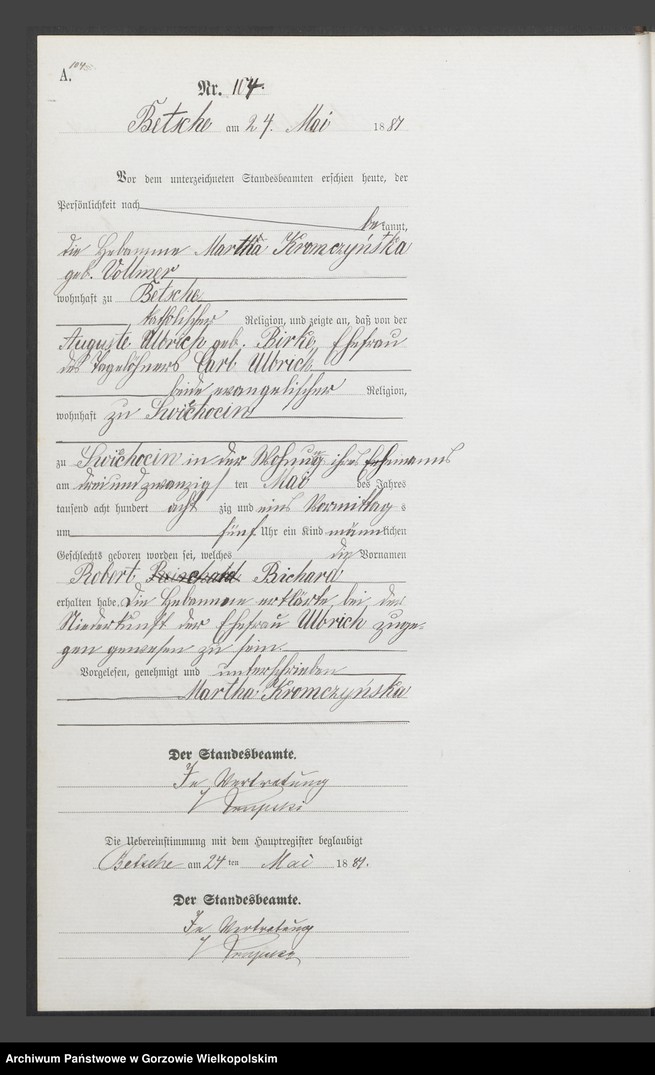 A.
Nr. 104.
Betsche am 24. Mai 1881
Vor dem unterzeichneten Standesbeamten erschien heute, der
Persönlichkeit nach
bekannt,
die Hebamme Martha Kromczyńska
geb. Vollmer
wohnhaft zu Betsche
katholischer Religion, und zeigte an, daß von der
Auguste Ulbrich geb. Birke, Ehefrau
des Tagelöhners Carl Ulbrich
beide evangelischer Religion,
wohnhaft zu Swichocin
zu Swichocin in der Wohnung ihres Ehemanns
am drei und zwanzig ten Mai des Jahres
tausend acht hundert acht zig und eins Vormittag s
um fünf Uhr ein Kind männlichen
Geschlechts geboren worden sei, welches die Vornamen
Robert Richard
erhalten habe. Die Hebamme erklärte, bei der
Niederkunft der Ehefrau Ulbrich zuge-
gen gewesen zu sein.
Vorgelesen, genehmigt und unterschrieben
Martha Kromczyńska
Der Standesbeamte.
In Vertretung
Die Uebereinstimmung mit dem Hauptregister beglaubigt
Betsche am 24 ten Mai 1881.
Der Standesbeamte.
In Vertretung
Archiwum Państwowe w Gorzowie Wielkopolskim